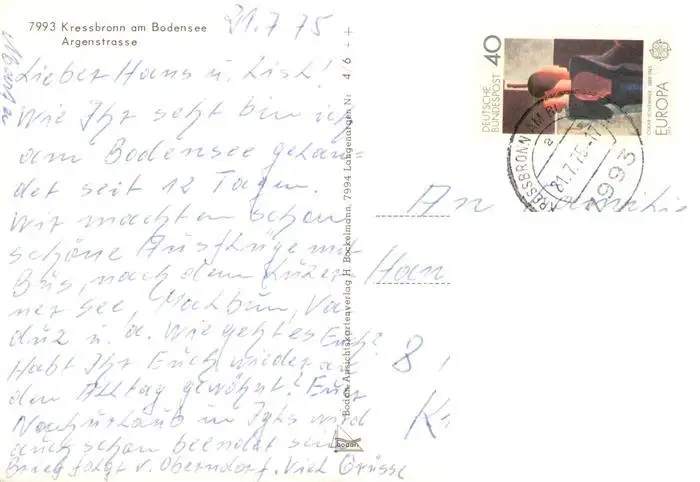 7993 Kressbronn am Bodensee
Argenstrasse
21.7.75
Lieber Hans u. Lisl!
Wie Ihr seht bin ich
am Bodensee gelan-
det seit 12 Tagen.
Wir machten schon
schöne Ausflüge mit
Bus, nach dem Luzer-
ner See, Malbun, Va
duz u. a. Wie geht es Euch?
Habt Ihr Euch wieder an
den Alltag gewöhnt? Euer
Nachurlaub in Igls wird
auch schon beendet sein
Brief folgt v. Oberndorf. Viele Grüsse
4/6 ++
Boden Ansichtskartenverlag H. Bockelmann, 7994 Langenargen Nr.
boden
DEUTSCHE
BUNDESPOST
40
OSKAR SCHLEMMER 1888-1943
EUROPA
KRESSBRONN AM BO
a
21.7.75-17
7993
An Familie
Han
8
K